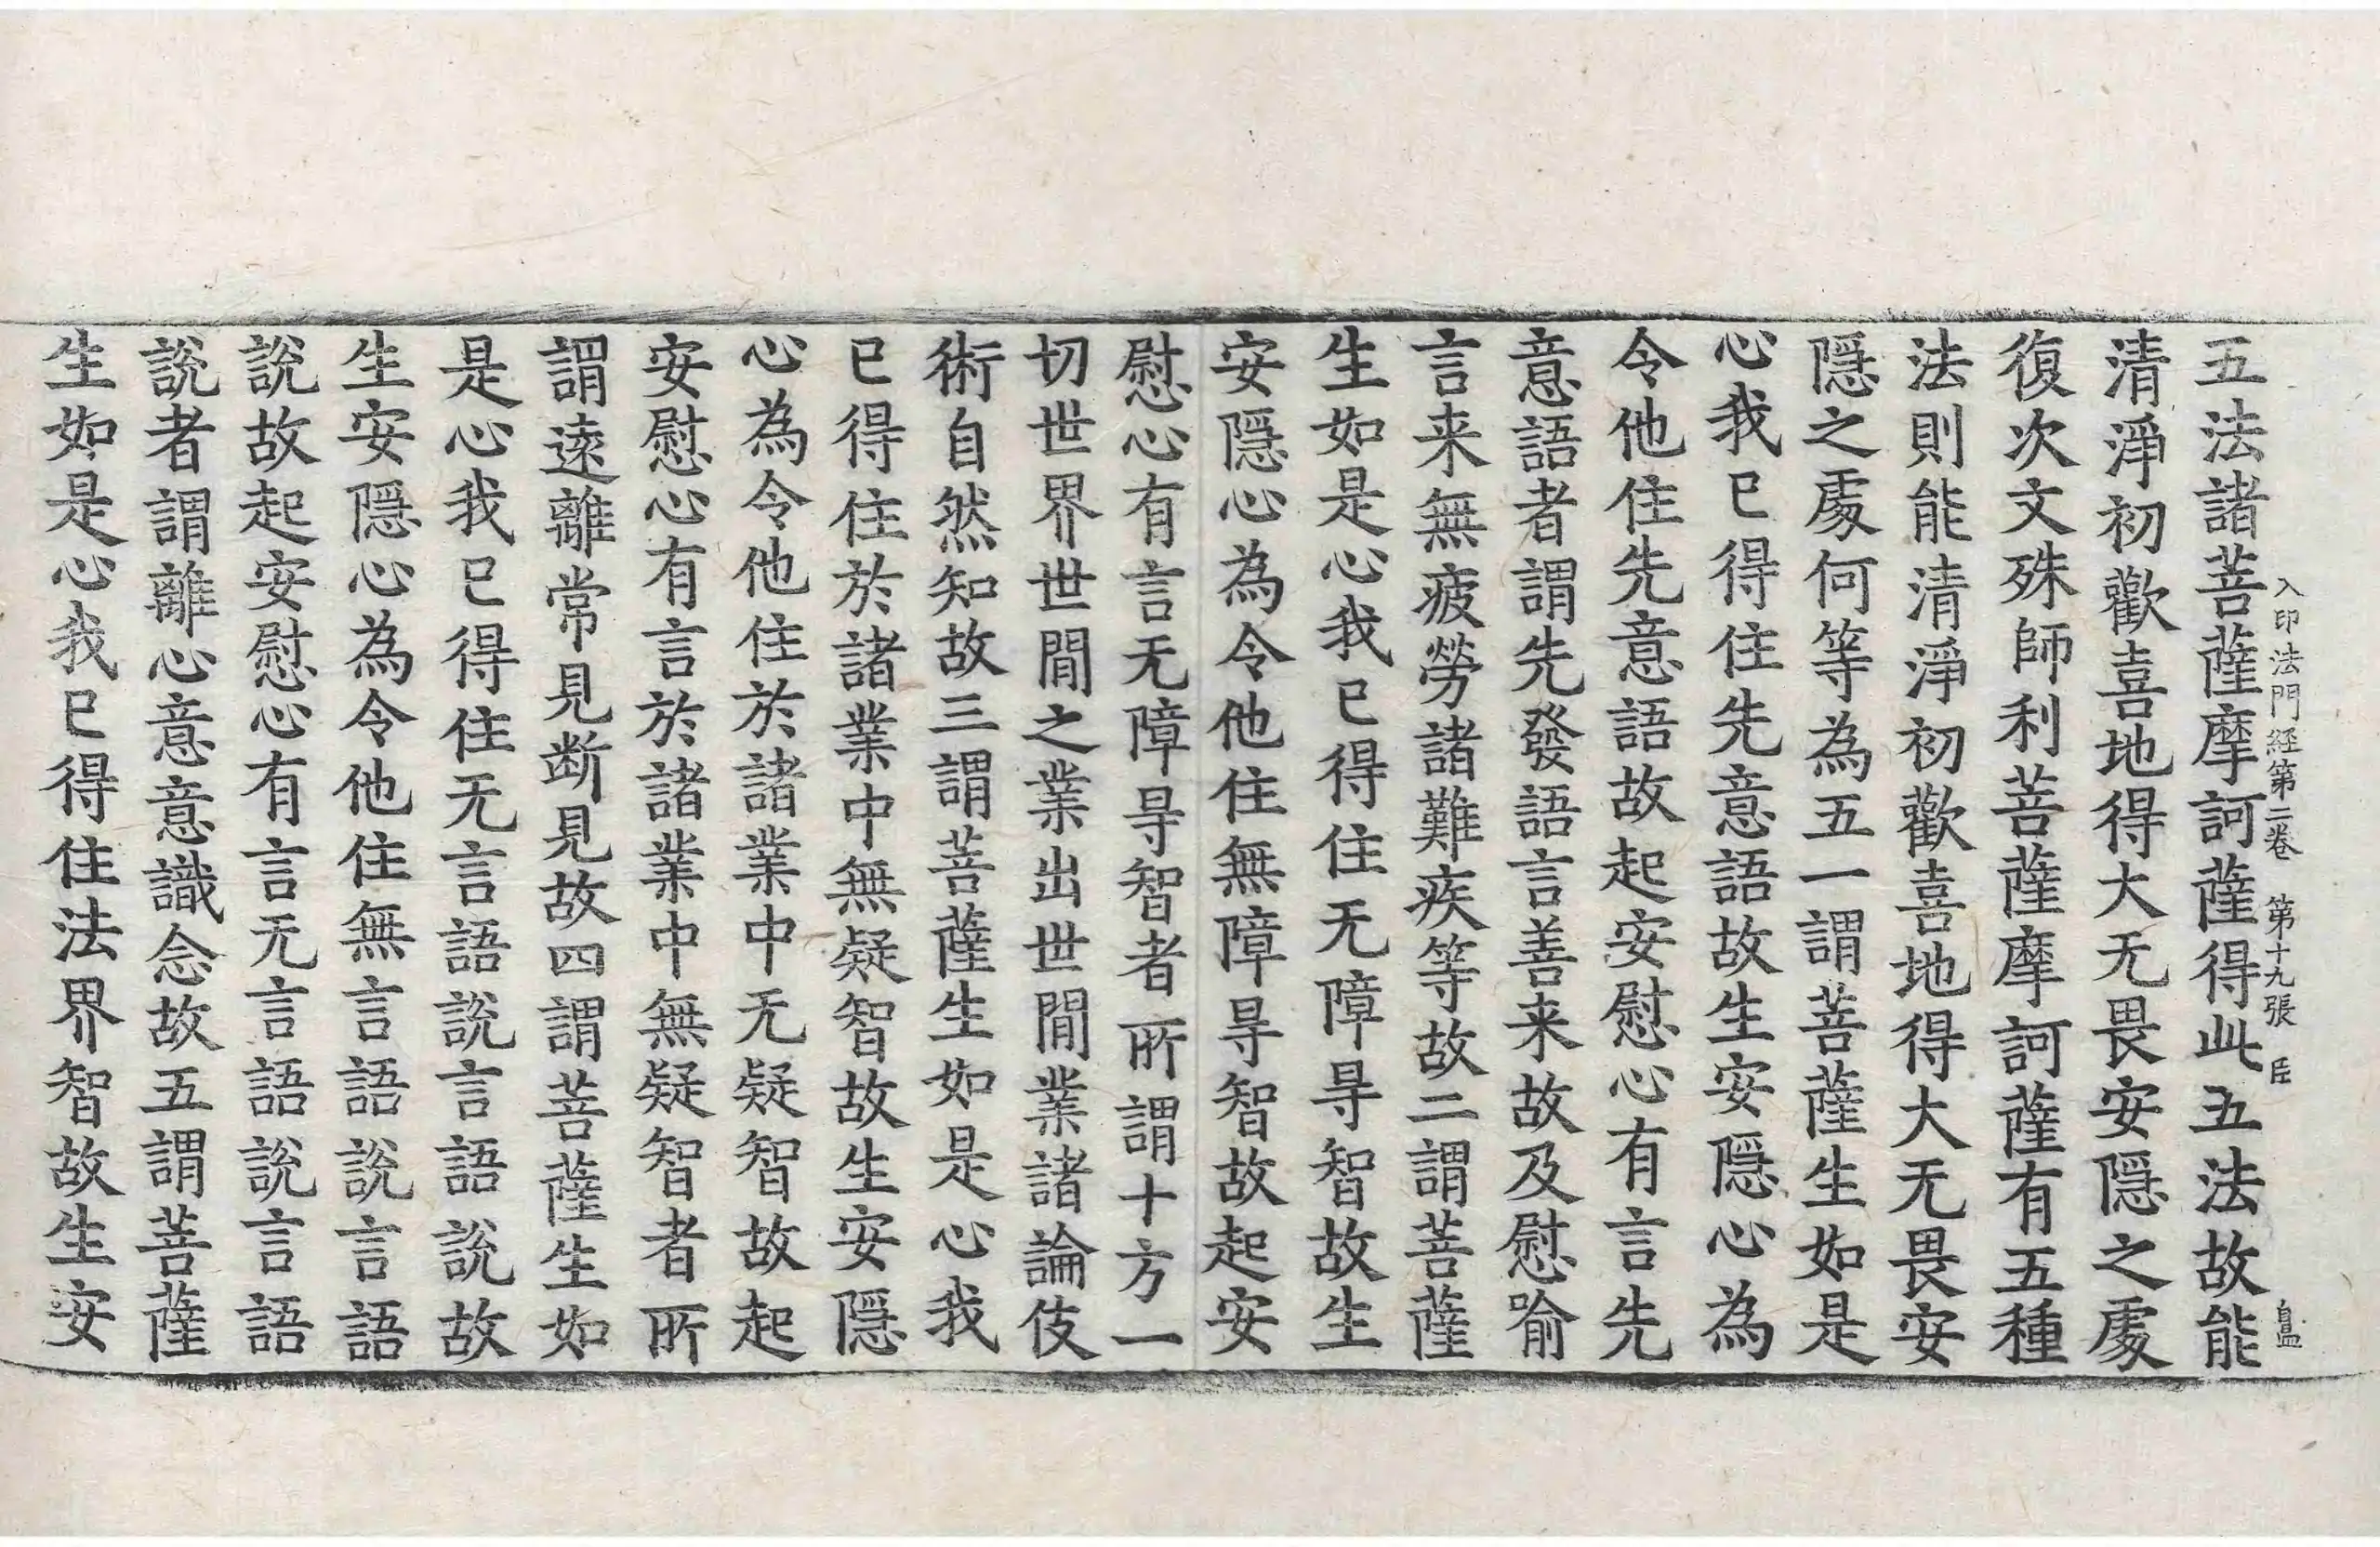 入印法門経第二卷　第十九張　臣
五法諸菩薩摩訶薩得此五法故能
清淨初歡喜地得大无畏安隱之處
復次文殊師利菩薩摩訶薩有五種
法則能清淨初歡喜地得大无畏安
隱之處何等為五一謂菩薩生如是
心我已得住先意語故生安隱心為
令他住先意語故起安慰心有言先
意語者謂先發語言善来故及慰喻
言来無疲勞諸難疾等故二謂菩薩
生如是心我已得住无障㝵智故生
安隱心為令他住無障㝵智故起安
慰心有言无障㝵智者所謂十方一
切世界世間之業出世間業諸論伎
術自然知故三謂菩薩生如是心我
已得住於諸業中無疑智故生安隱
心為令他住於諸業中无疑智故起
安慰心有言於諸業中無疑智者所
謂遠離常見断見故四謂菩薩生如
是心我已得住无言語說言語說故
生安隱心為令他住無言語說言語
說故起安慰心有言无言語說言語
說者謂離心意意識念故五謂菩薩
生如是心我已得住法界智故生安